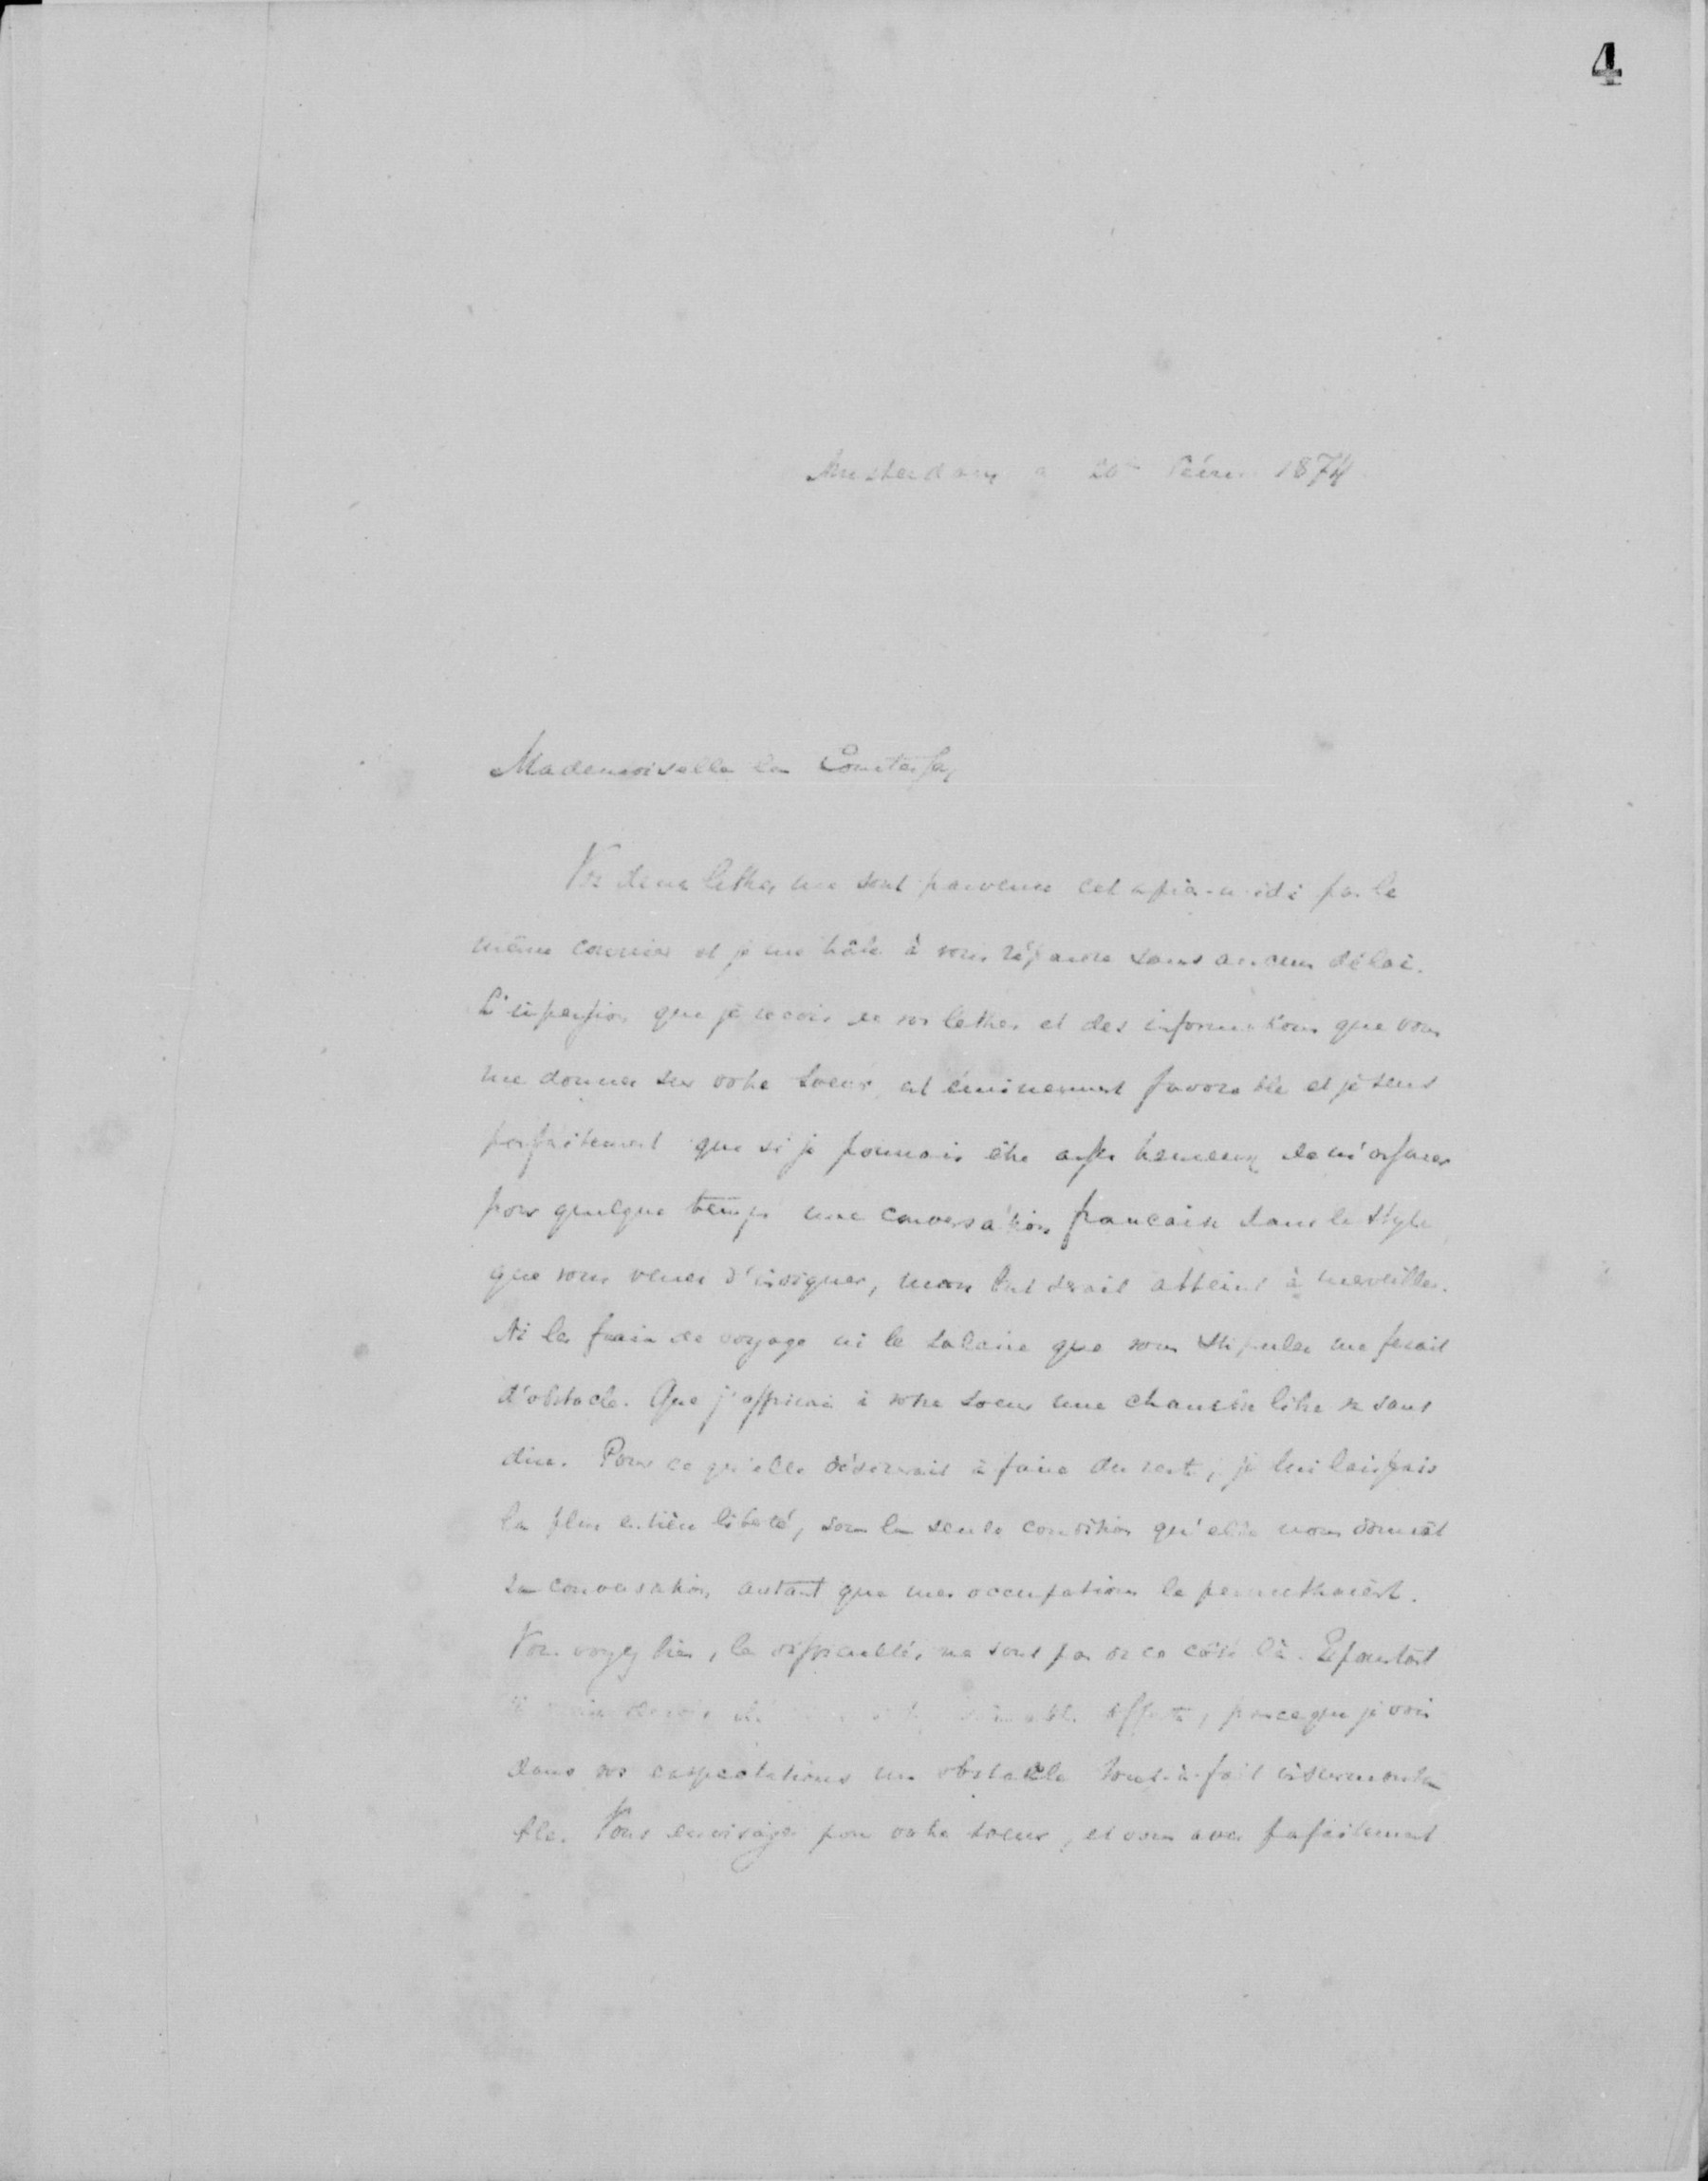 4
Amsterdam 20 Févr. 1874
Mademoiselle la Comtesse,
Vos deux lettres me sont parvenus cet après-midi par le
même courrier et je me hâte à vous répondre sans aucun délai.
L'impression que je recois de vos lettres et des informations que vous
me donnez sur votre soeur est éminemment favorable et je sens
parfaitement que si je pouvais être assez heureux de m'assurer
pour quelque temps une conversation francaise dans le style
que vous venez d'insigner, mon but serait atteint à merveilles.
Ni les frais de voyage ni le salaire que vous stipulez me ferait
d'obstacle. Que j'offrirai à votre soeur une chambre libre va sans
dire. Pour ce qu'elle désirerait à faire du reste, je lui laissais
la plus entière liberté, sous la seule condition qu'elle nous donnât
sa conversation, autant que mes occupations le permettraient.
Vous voyez bien, les difficultés ne sont pas de ce côté là. Et pourtant
offerte, parceque je vois
dans vos expectations un obstacle tout-à-fait insurmonta
ble. Vous envisagez pour votre soeur, et vous avez parfaitement